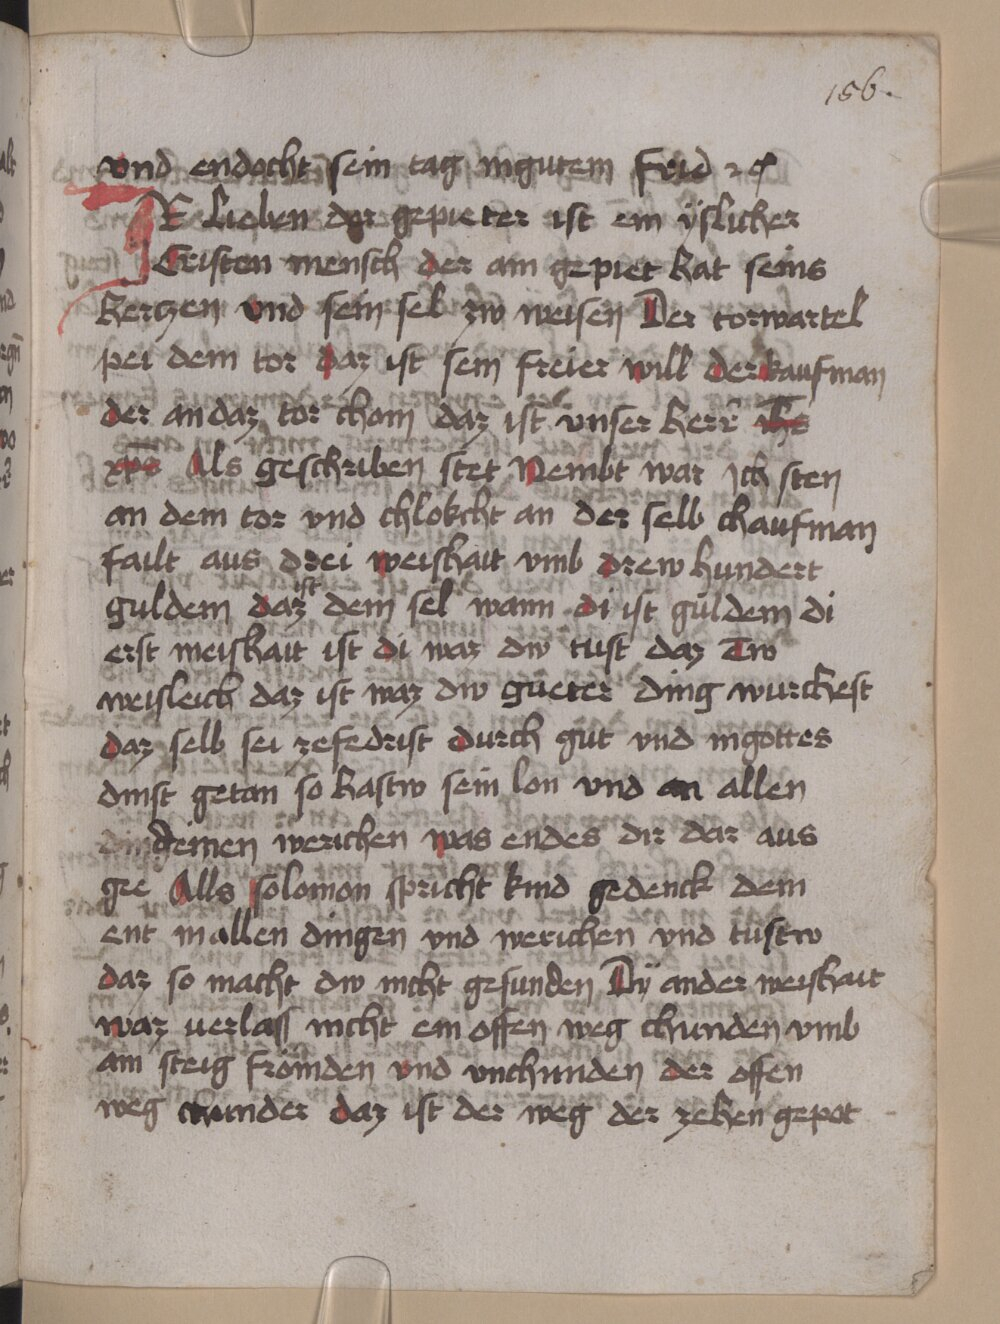 156.
vnd endocht sein tag ingutem frid ⁊ c̄
IR lieben der gepieter ist ein ÿslicher
Cristen mensch der ain gepiet hat seins
hertzen vnd sein sel zw weisen Der torwartel
pei dem tor daz ist sein freier will der kaufman
der an daz tor chom daz ist vnser herr ihs
xps Als geschriben stet Nembt war Jch sten
an dem tor vnd chlokcht an der selb chaufman
failt aus drei weishait vmb drew hundert
guldem daz ist dein sel wann di ist guldem di
erst weishait ist di waz dw tust daz Tw
weisleich daz ist waz dw gueter ding wurchest
daz selb sei zefedrist durch gut vnd in gottes
dinst getan so hastw sein lon vnd an allen
deinen werichen was endes dir dar aus
gee Alls solomon spricht kind gedenck dem
ent in allen dingen vnd werichen vnd tustw
daz so macht dw nicht gesunden Dÿ ander weishait
waz verlass nicht ein offen weg chunden vmb
ain steig frömden vnd vnchunden der offen
weg wunder daz ist der weg der zehen gepot